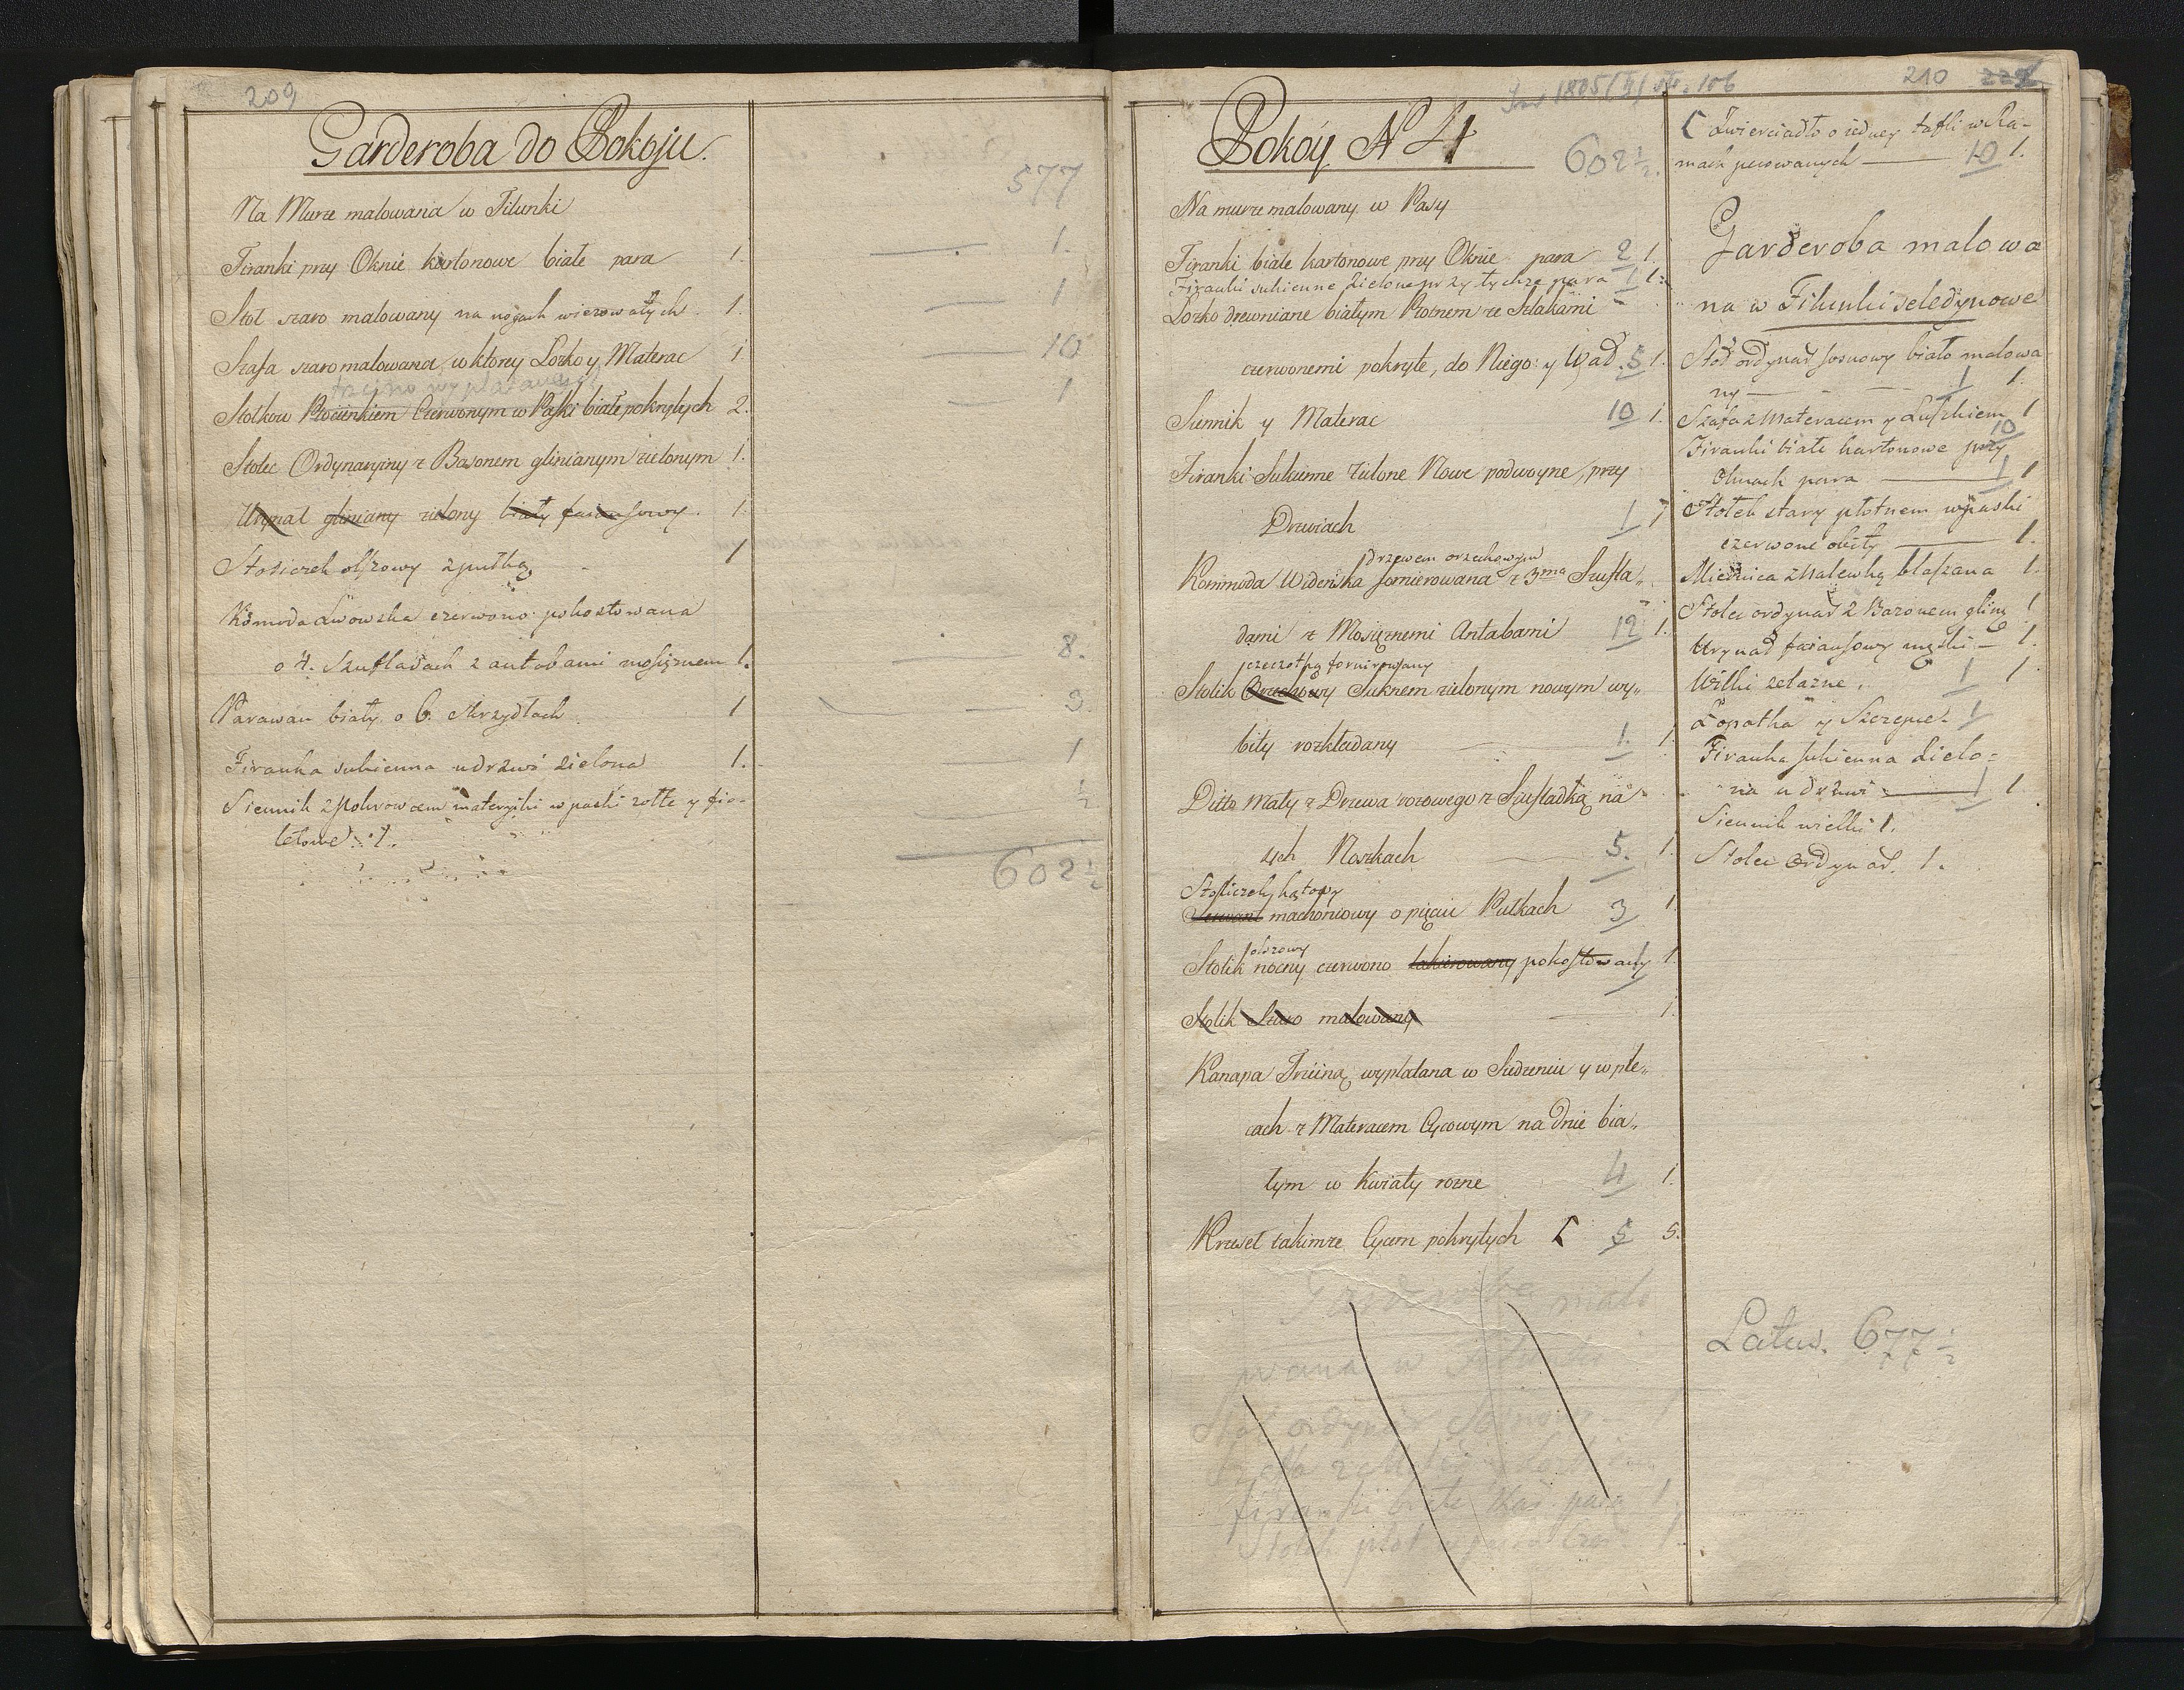 209
Garderoba do Pokoju.
577
Na Murze malowana w Filunki
Firanki przy Oknie kartonowe białe para 1. 1.
Stoł szaro malowany na nogach wierzowatych 1. 1
Szafa szaro malowana, w ktorey Łozko y Materac 1 10
Stołkow Płocienkiem Czerwonym w Paski białe pokrytych 2. 1
Stolec Ordynaryiny z Basonem glinianym zielonym 1.
Urynał gliniany zielony biały faiansowy. 1.
Stoliczek olszowy z pułką 1
Komoda Lwowska czerwono pokostowana
o 4. Szufladach z antabami mosięznem 1. 8.
Parawan biały o 6. Skrzydłach 1 3.
Firanka sukienna u drzwi zielona 1. 1
Siennik z Pokrowcem materyiki w paski zołte y fio-
letowe 1. ½
602½
Inw 1805 (II) str. 106
210
Pokóy N 4
602½.
Na murze malowany w Pasy
Firanki białe kartonowe przy Oknie para 2 1.
Firanki sukienne zielone przy tychze para 1 1.
Łozko drewniane białym Płotnem ze Szlakami
czerwonemi pokryte, do Niego y Wad. 5 1.
Siennik y Materac 10 1.
Firanki Sukienne zielone Nowe podwoyne, przy
Drzwiach 1 1
drzewem orzechowym
Kommoda Wideńska fornierowana z 3ma Szufla„
dami z Mosięznemi Antabami 12 1.
czeczotką fornirowany
Stolik Orzechowy Suknem zielonym nowym wy„
bity rozkładany 1. 1.
Ditto mały z Drzewa rozowego z Szufladką na
4ch Noszkach 5. 1.
Stoliczek kątowy
Serwant machoniowy o pięciu Pułkach 3 1
olszowy
Stolik nocny czerwono lakierowany pokostowany 1 1.
Stolik Szaro malowany 1.
Kanapa Trzciną wyplatana w Siedzeniu y w ple„
cach z Materacem Cycowym na dnie bia„
łym w Kwiaty rozne 4 1.
Krzeseł takimze Cycem pokrytych [ 5 5.
Garderoba malo
wana w Filunki
Stoł ordynar Sosnowy 1
Firanki białe Kar. para 1
[ Zwierciadło o iedney tafli w Ra-
mach 10 1.
Garderoba malowa
na w Filunki seledynowe
Stoł ordynar sosnowy biało malowa
ny 1 1.
Szafa z Materacem y Łuszkiem 1
10
Firanki białe kartonowe przy
Oknach para 1 1
Stołek stary płotnem w paski
czerwone obity 1.
Miednica z Nalewką blaszana 1.
Stolec ordynar z Bazonem glin 1
Urynał faiansowy męzki 1.
Wilki zelazne. 1 1
Łopatka y Szczypce 1
Firanka sukienna zielo=
na u drzwi 1 1
Siennik wielki 1.
Stolec Ordynar. 1.
Latus. 677½